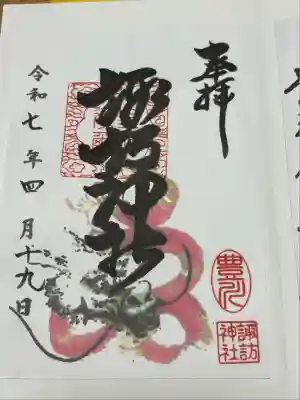 奉拝
諏訪神社
令和七年四月十九日
豊川
諏訪
神社